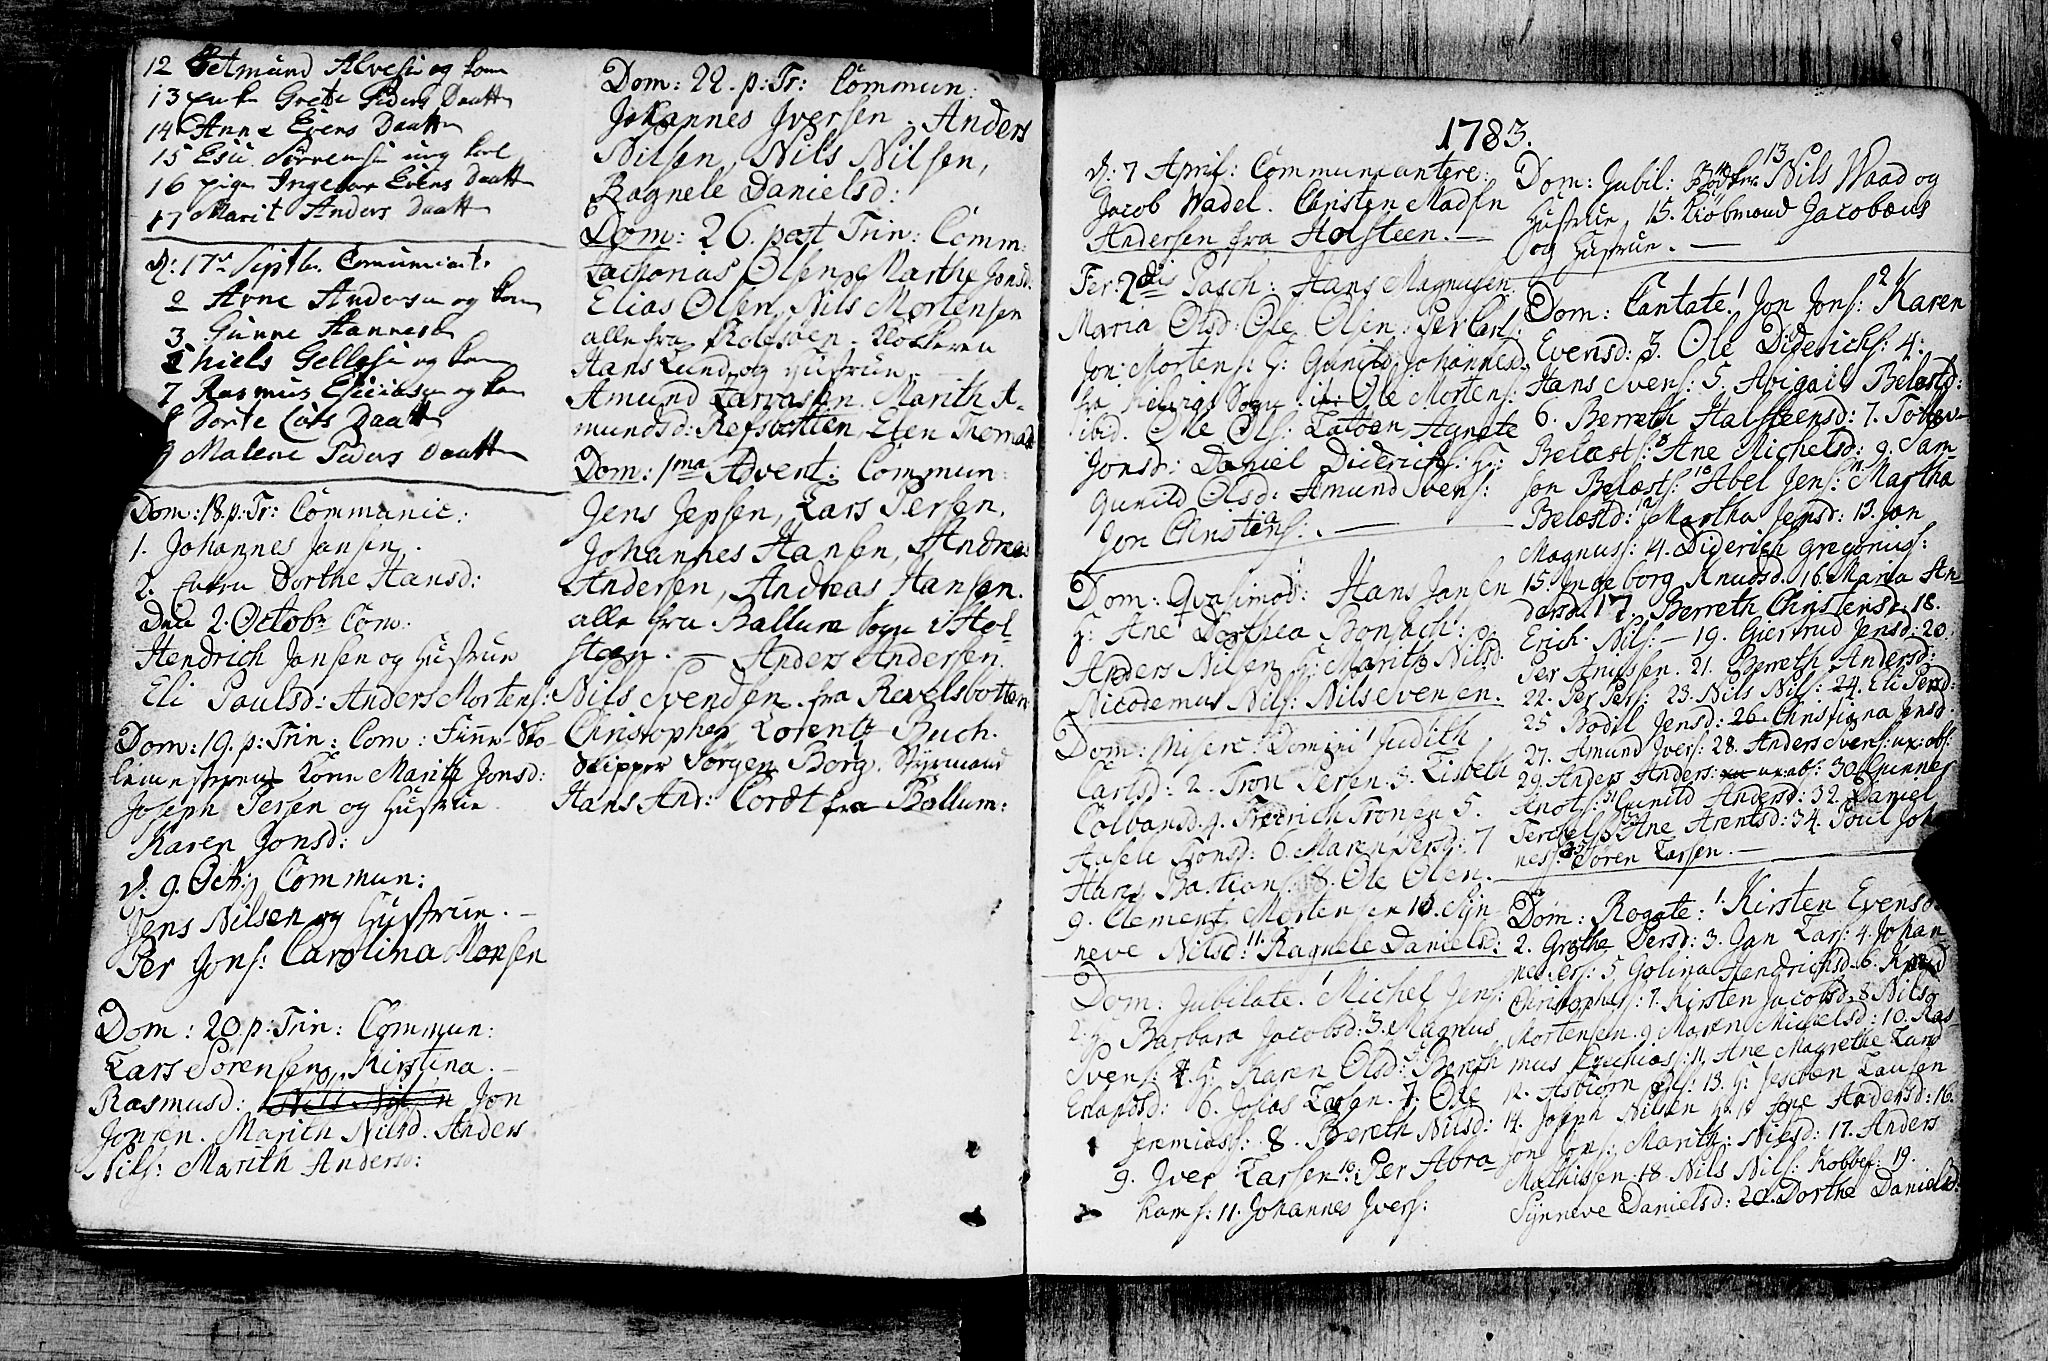 12 Amund Alvesen og kone
13 Enke Grete Peders Daatter
14 Anne Evens Daatter
15 Esu Sörrensen ung karl
16 pige Ingebor Evens Daatter
17 Marit Anders Daatter
D: 17de Septbr. Comunicant:
2 Arne Andersen og kone
3 Gunne Hannesd
Niels Gellesen og kone
7 Rasmus og kone
8 Dorte Daatter
9 Malene Peders Daatter
Dom: 18. p: Tr: Communic:
1. Johannes Jansen.
2. Enken Dorthe Hansd:
Den 2. Octobr Com:
Hendrich Jansen og Hustrue
Eli Paulsd: Anders Mortens:
Dom: 19. p: Trin: Com: Finn Sko-
lemesterens Kone Marith Jonsd:
Joseph Persen og Hustrue
Karen Jonsd:
d: 9. Octbr Commun:
Jens Nilsen og Hustrue. —
Per Jons: Carolina Monsen
Dom: 20. p: Trin: Commun:
Lars Sörensen, Kirstina
Rasmusd: Nils Nilsen Jon
Jonsen. Marith Nilsd. Anders
Nils: Marith Andersd:
Dom: 22. p: Tr: Commun:
Johannes Iversen, Anders
Nilsen, Nils Nilsen,
Ragnele Danielsd:
Dom: 26. post Trin: Comm:
Zacharias Olsen og Marthe Jonsd.
Elias Olsen, Nils Mortensen
alle fra Rolfsöen. Klokkeren
Hans Lund og Hustrue.
Amund Larrassen. Marith A-
mundsd: Refsbotten, Elen Tromas
Dom: 1ma Advent: Commun:
Jens Jepsen, Lars Persen,
Johannes Hansen, Andreas
Andersen, Andreas Hansen.
alle fra Ballum Sogn i Hol-
steen. — Anders Andersen.
Nils Svendsen fra Revelsbotten
Christopher Lorentz Buch.
Skipper Jörgen Borg. Styrmand
Hans And: Cordt fra Ballum:
1783.
d: 7 April: Communicantere:
Jacob Wadel. Christen Madsen
Andersen fra Holsteen. —
Fer: 2dis Pasch: Hans Magnusen
Maria Olsd: Ole Olsen: Per Carls:
Jon Mortens: H: Gunild Johannesd.
fra Sogn it: Ole Mortens:
ibid. Ole Ols: Agnete
Jonsd: Daniel Diderichs: H:
Gunild Olsd: Amund Svens:
Jon Christens: —
Dom: Qvasimod: Hans Jansen
H: Ane Dorthea Bonsach:
Anders Nilsen H: Marith Nilsd.
Nicodemus Nils: Nils Svensen.
Dom: Miseric: Domini 1 Judith
Carlsd: 2. Tron Persen. 3. Lisbeth
Colvansd. 4. Fredrich Tronsen 5.
Tronsd: 6. Maren Persd: 7
Hans Bastians: 8. Ole Olsen.
9. Clement Mortensen 10. Syn
neve Nilsd: 11. Ragnele Danielsd:
Dom: Jubilate. 1 Michel Jens:
2. H: Barbara Jacobsd: 3. Magnus
Svens: 4. H: Karen Olsd: 5. Bereth
6. Johas Larsen. 7. Ole
Jeremiass: 8. Bereth Nilsd:
9. Iver Larsen 10. Per Abra
hams: 11. Johannes Ivers:
Dom: Jubil: Nils Waad og
Hustrue, 15. Kiöbmand Jacobæus
og Hustrue. —
Dom: Cantate. 1 Jon Jons: 2 Karen
Evensd: 3. Ole Diderichs: 4:
Hans Ivens: 5. Abigail Belæstd:
6. Berreth Halsteensd: 7.
Belæst: 8 Ane Michelsd: 9. Sam-
son Belæsts: 10 Abel Jens: 11 Martha
Belæstd: 12 Martha Jensd: 13. Jon
Magnus: 14. Diderich Gregorius:
15. Ingeborg Knudsd. 16. Maria An-
dersd: 17. Berreth Christensd. 18.
Erich Nils: — 19. Giertrud Jensd: 20.
Per Amussen. 21. Berreth Andersd:
22. Per Pers: 23. Nils Nils: 24. Eli Persd:
25 Bodil Jensd: 26. Christiana Jensd:
27. Amund Ivers: 28. Anders Svens: ux: abs:
29. Anders Anders: ux abs: 30. Gunner
Knots: 31 Gunild Andersd: 32. Daniel
Terchels: 33 Ane Arentsd: 34. Poul Johan
nes: 35 Sören Larsen. —
Dom: Rogate: 1. Kirsten Evensd:
2. Grethe Persd: 3. Jan Lars: 4. Johan
nes Pers: 5 Golina Hendrichsd. 6. Knud
Christophers: 7. Kirsten Jacobsd. 8 Nils
Mortensen. 9. Maren Michelsd: 10. Ras-
mus 11. Ane Magrethe Lars
12. Asbiörn Ols: 13. H: Jesebel Larsen
14. Joseph Nilsen H: 15 Ane Andersd: 16.
Jon Jons: Marith: Nilsd: 17. Anders
Mathissen. 18. Nils Nils: Kobbe: 19.
Synneve Danielsd: 20. Dorthe Danielsd: